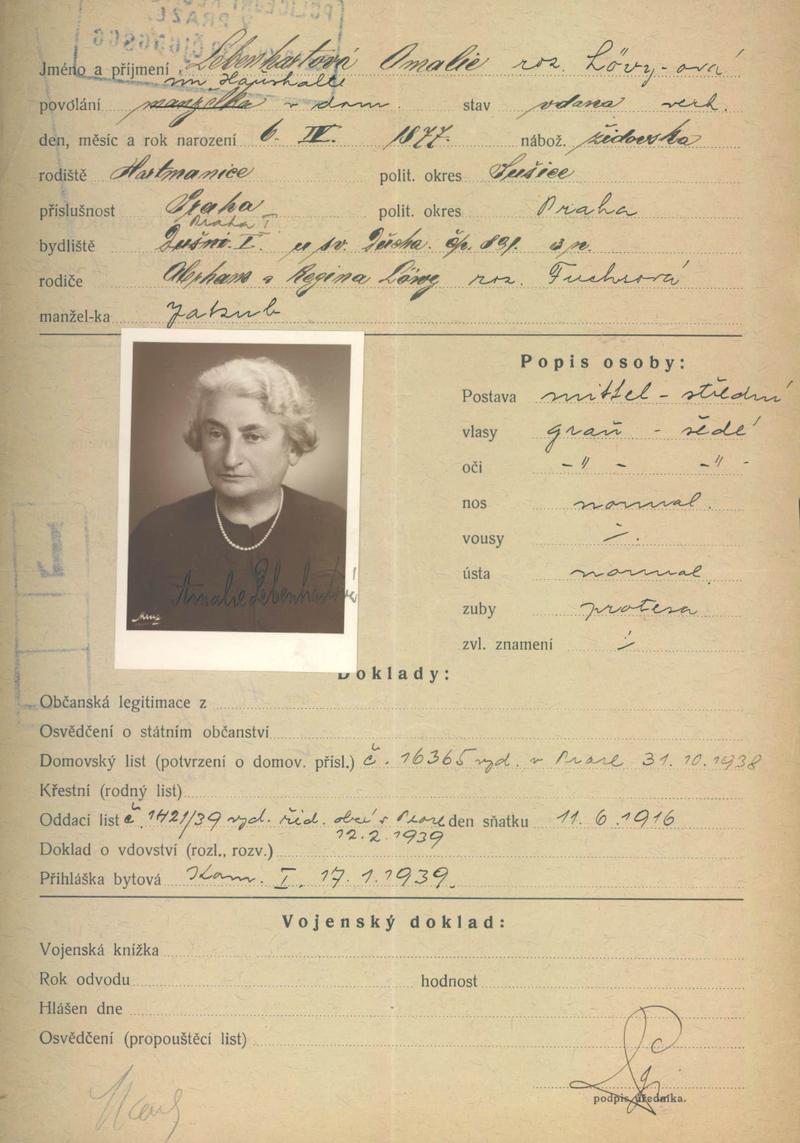 POLICEJNÍ
V PRAZE
Jméno a příjmení Lebenhartová Amalie roz. Löwy-ová
im Haushalte
povolání manželka v dom. stav vdana verh.
den, měsíc a rok narození 6. IV. 1877. nábož. židovska
rodiště Hartmanice polit. okres Sušice
příslušnost Praha polit. okres Praha
Praha I
bydliště Dušni. I. u sv. Ducha. čp. 891.
rodiče Abraham a Regina Löwy roz. Fuchsová
manžel-ka Jakub
Popis osoby:
Postava mittel - střední
vlasy grau - šedé
oči -"- -"-
nos normal.
vousy
ústa normal.
zuby protesa
zvl. znamení
Amalie Lebenhartová
Doklady:
Občanská legitimace z
Osvědčení o státním občanství
Domovský list (potvrzení o domov. přísl.) č. 16365 vyd. v Praze 31. 10. 1938
Křestní (rodný list)
Oddací list č. 1421/39 vyd. žid. obcí v Praze den sňatku 11. 6. 1916
12. 2. 1939
Doklad o vdovství (rozl., rozv.)
Přihláška bytová Kom. I. 17. 1. 1939.
Vojenský doklad:
Vojenská knížka
Rok odvodu hodnost
Hlášen dne
Osvědčení (propouštěcí list)
podpis úředníka.